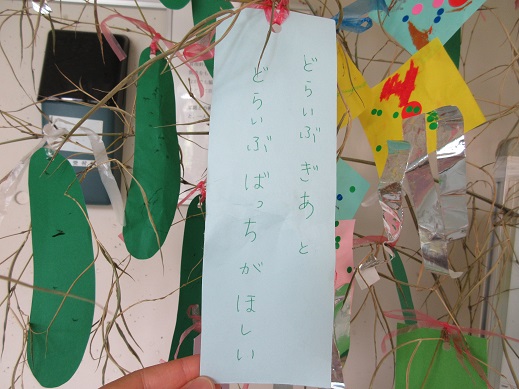 どらいぶ ぎあと
どらいぶ ばっちがほしい